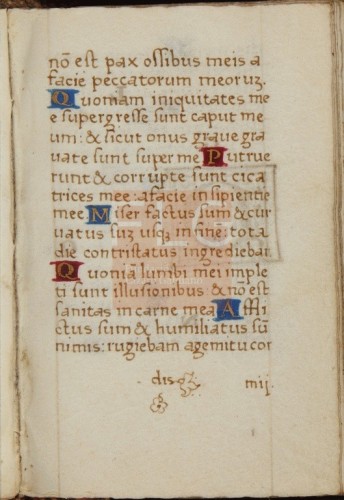 nō est pax ossibus meis a
facie peccatorum meoruꝫ.
Quoniam iniquitates me
e supergresse sunt caput me
um: & sicut onus graue gra
uate sunt super me Putrue
runt & corrupte sunt cica
trices mee: a facie insipientie
mee Miser factus sum & cur
uatus suꝫ usqꝫ in finē: tota
die contristatus ingrediebar
Quoniā lumbi mei imple
ti sunt illusionibus: & nō est
sanitas in carne mea Affli
ctus sum & humiliatus sū
nimis: rugiebam a gemitu cor
dis
mij.